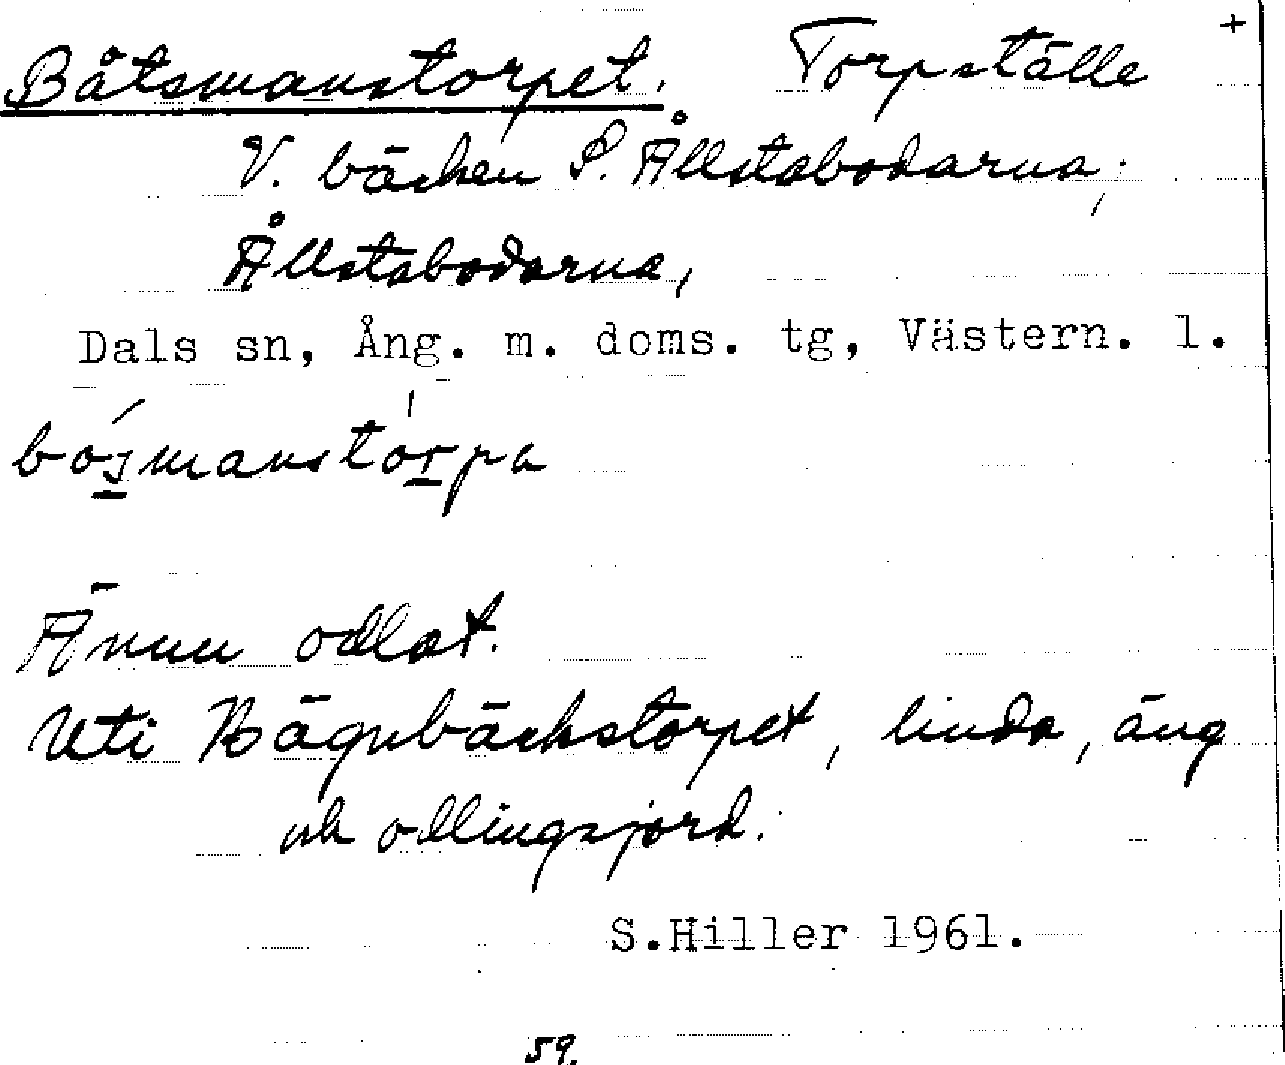 Båtsmanstorpet. Torpställe +
V. bäcken S. Ållstabodarna,
Ållstabodarna,
Dals sn, Ång. m. doms. tg, Västern. l.
bósmanstórpa
Ännu odlat.
Uti Vägnbäckstorpet, linda, äng
och odlingsjord.
S.Hiller 1961.
59.